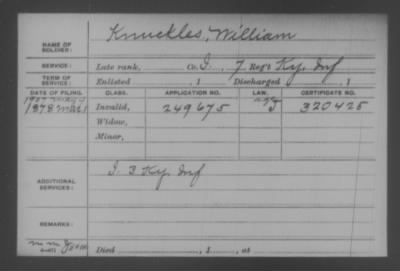 NAME OF SOLDIER: Knuckles, William
SERVICE: Late rank, Co. I. 7 Reg't Ky. Inf
TERM OF SERVICE: Enlisted , 1 Discharged , 1
DATE OF FILING. CLASS. APPLICATION NO. LAW. CERTIFICATE NO.
1878 Invalid, 249675 320425
Widow,
Minor,
ADDITIONAL SERVICES: I 3 Ky. Inf
REMARKS:
Died , 1 , at